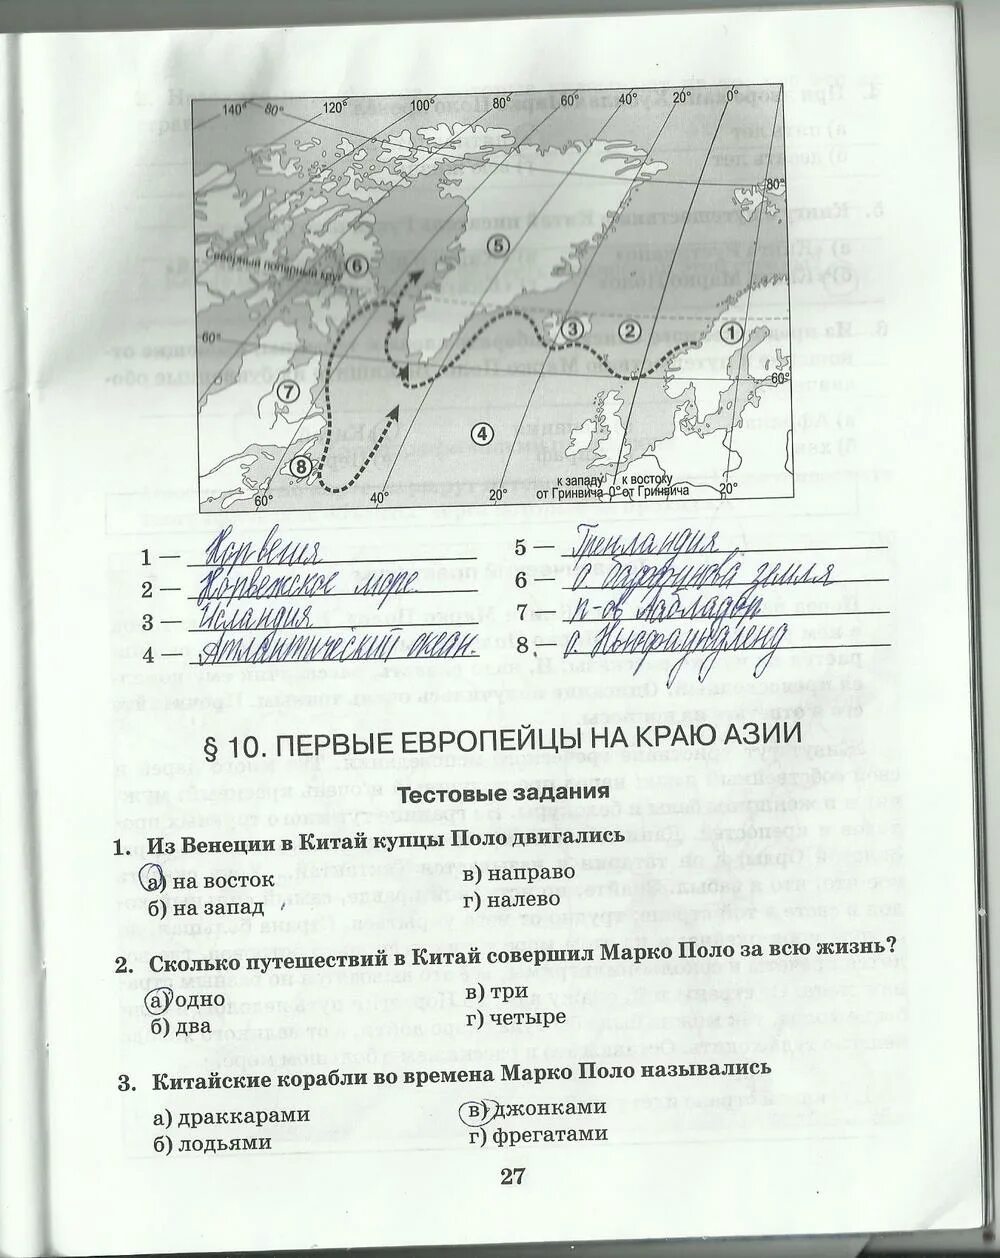 140° 80° 120° 100° 80° 60° 40° 20° 0°
80°
Северный полярный круг
6
5
60°
3
2
1
60°
7
4
8
к западу к востоку
от Гринвича 0° от Гринвича
60° 40° 20° 20°
1 — Норвегия
2 — Норвежское море
3 — Исландия
4 — Атлантический океан.
5 — Гренландия
6 — о Баффинова земля
7 — п-ов Лабладор
8. — о. Ньюфаундленд
§ 10. ПЕРВЫЕ ЕВРОПЕЙЦЫ НА КРАЮ АЗИИ
Тестовые задания
1. Из Венеции в Китай купцы Поло двигались
а) на восток
б) на запад
в) направо
г) налево
2. Сколько путешествий в Китай совершил Марко Поло за всю жизнь?
а) одно
б) два
в) три
г) четыре
3. Китайские корабли во времена Марко Поло назывались
а) драккарами
б) лодьями
в) джонками
г) фрегатами
27